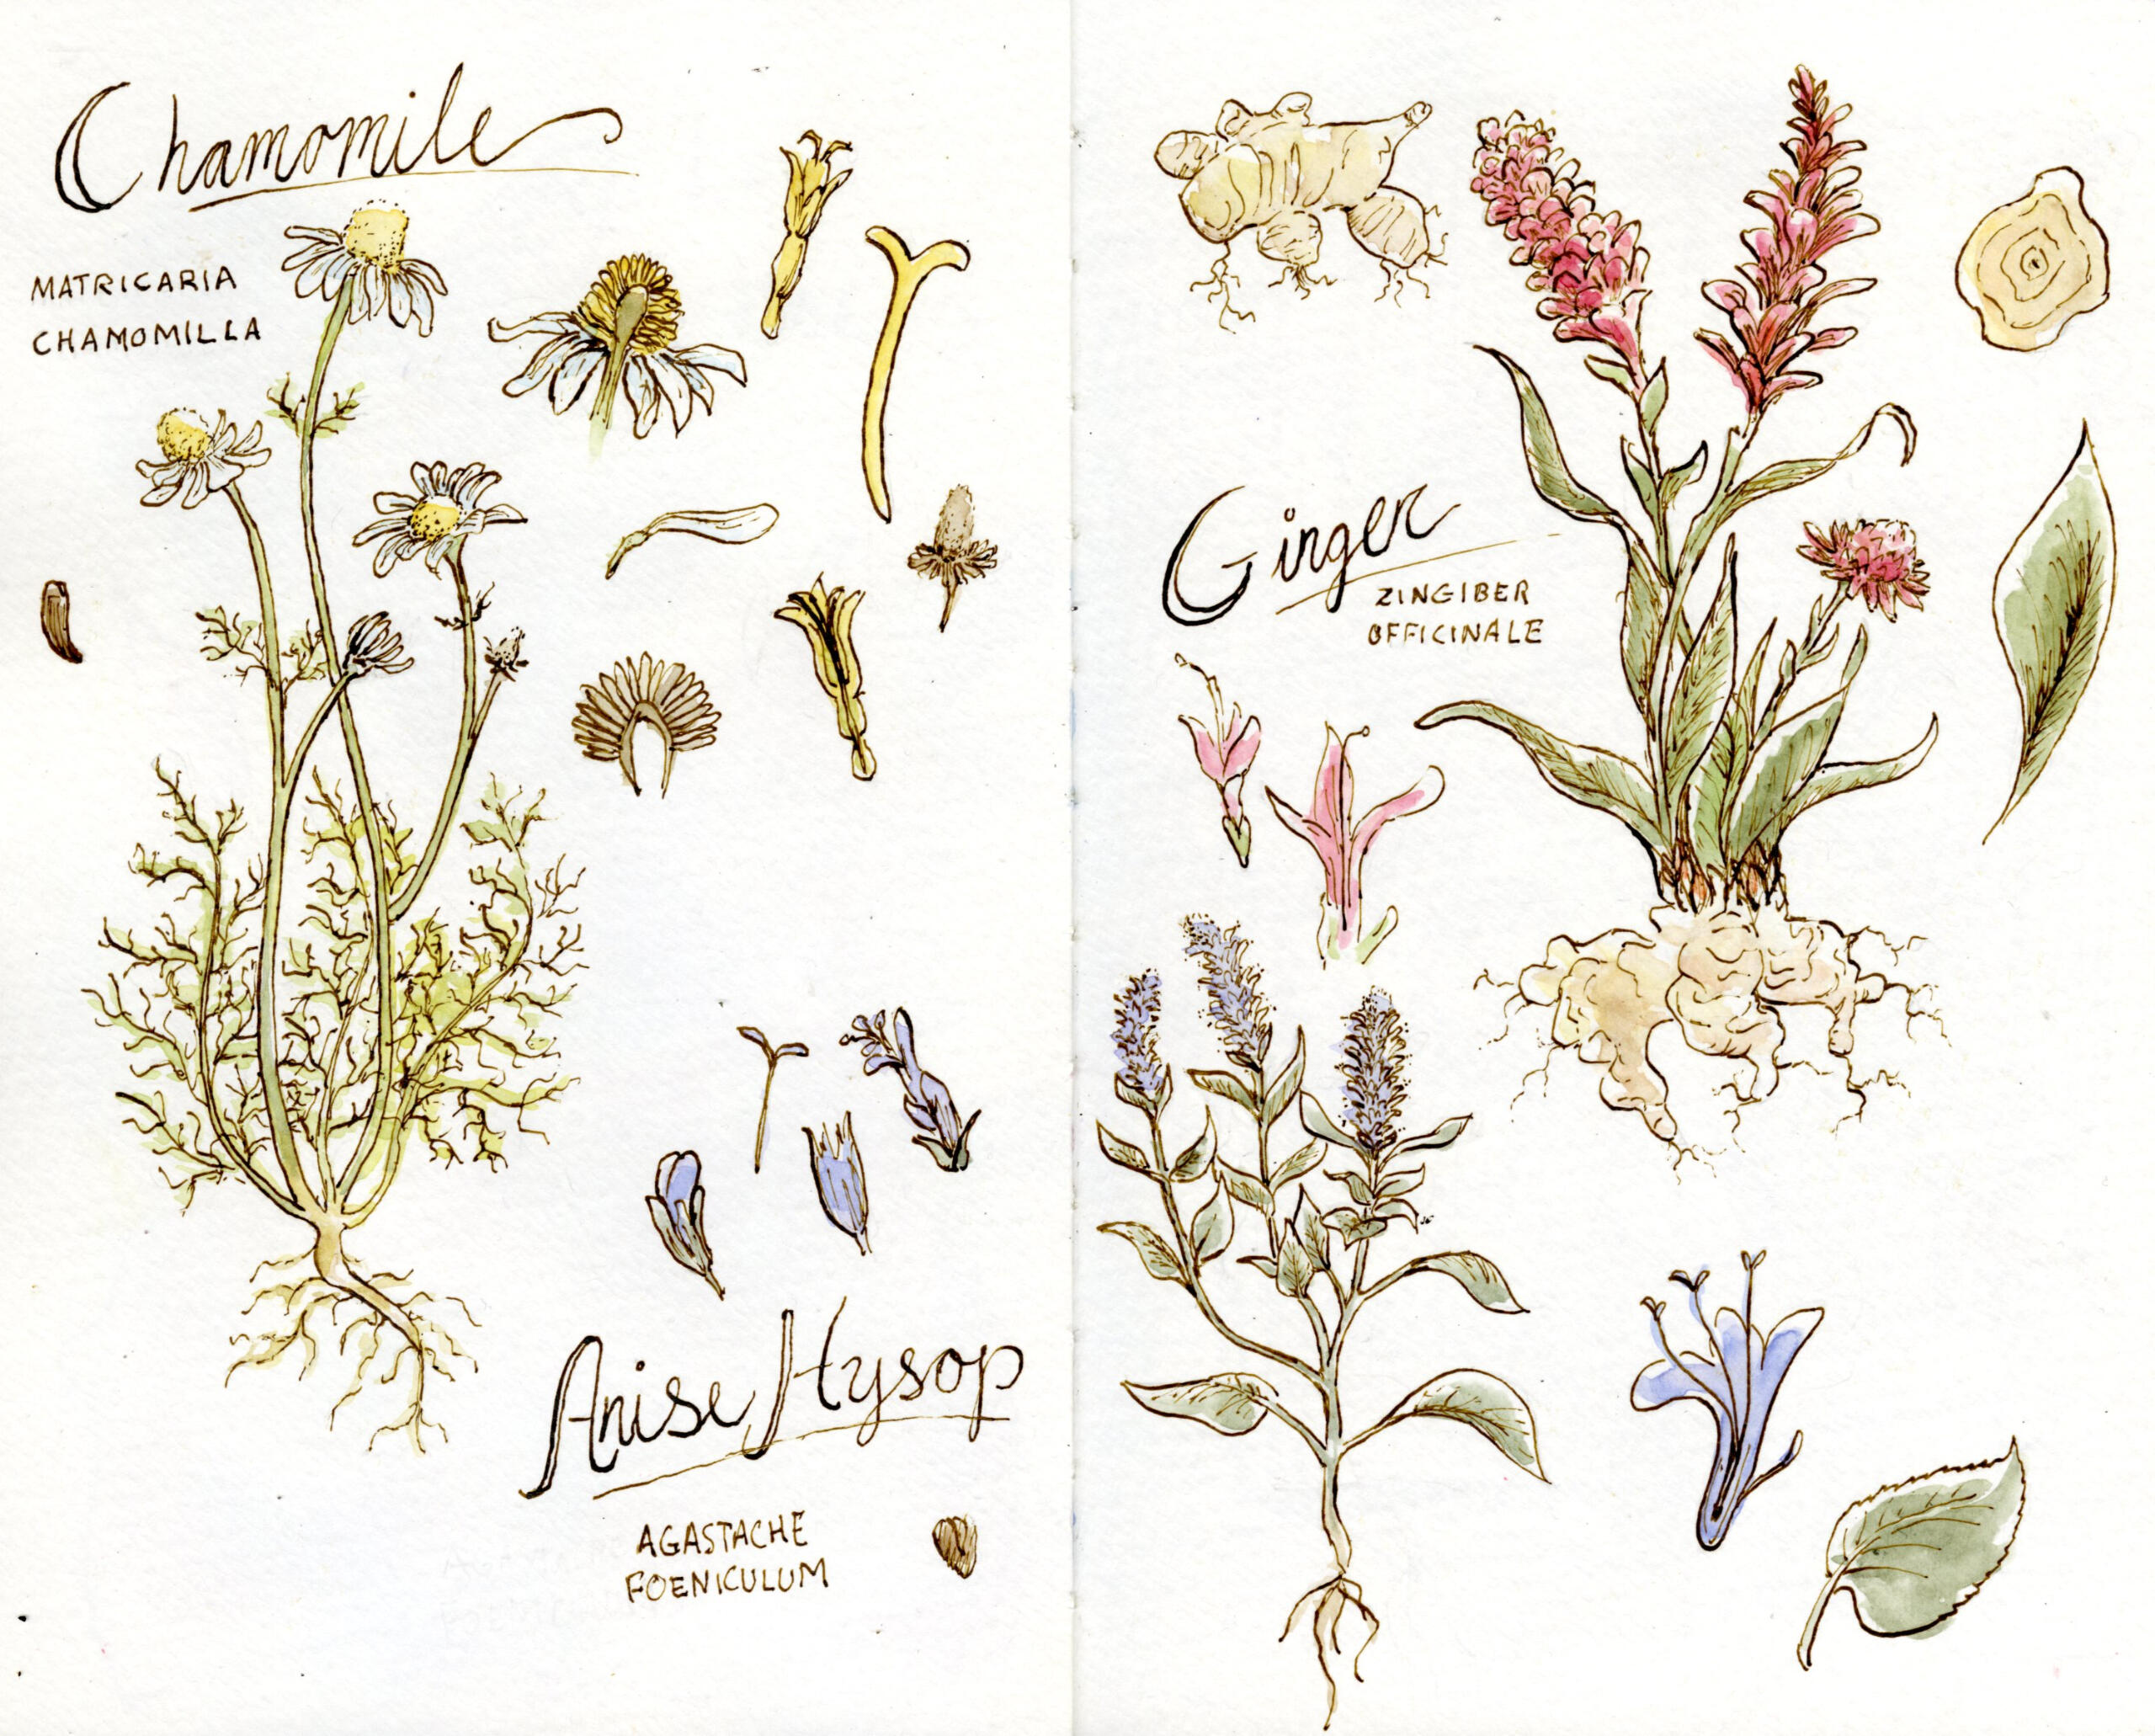 Chamomile
MATRICARIA
CHAMOMILLA
Anise Hysop
AGASTACHE
FOENICULUM
Ginger
ZINGIBER
OFFICINALE